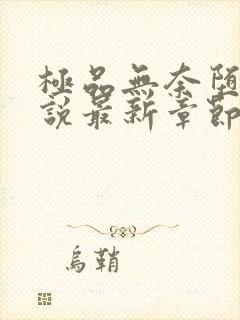 極品無奈堕
說最新章節
烏鞘